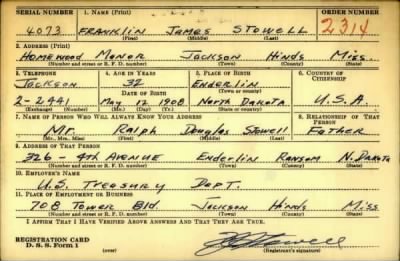 SERIAL NUMBER 1. NAME (Print) ORDER NUMBER
4073 FRANKLIN JAMES STOWELL 2314
(First) (Middle) (Last)
2. ADDRESS (Print)
HOMEWOOD MANOR JACKSON HINDS MISS.
(Number and street or R. F. D. number) (Town) (County) (State)
3. TELEPHONE 4. AGE IN YEARS 5. PLACE OF BIRTH 6. COUNTRY OF CITIZENSHIP
JACKSON 32 Enderlin
DATE OF BIRTH (Town or county)
2-2441 May 12 1908 NORTH DAKOTA U.S.A.
(Exchange) (Number) (Mo.) (Day) (Yr.) (State or country)
7. NAME OF PERSON WHO WILL ALWAYS KNOW YOUR ADDRESS 8. RELATIONSHIP OF THAT PERSON
Mr. Ralph Douglas Stowell FATHER
(Mr., Mrs., Miss) (First) (Middle) (Last)
9. ADDRESS OF THAT PERSON
326 - 4th AVENUE Enderlin RANSOM N. DAKOTA
(Number and street or R. F. D. number) (Town) (County) (State)
10. EMPLOYER'S NAME
U.S. TREASURY DEPT.
11. PLACE OF EMPLOYMENT OR BUSINESS
708 TOWER Bld. JACKSON HINDS MISS
(Number and street or R. F. D. number) (Town) (County) (State)
I AFFIRM THAT I HAVE VERIFIED ABOVE ANSWERS AND THAT THEY ARE TRUE.
REGISTRATION CARD
D. S. S. Form 1 (over) (Registrant's signature)